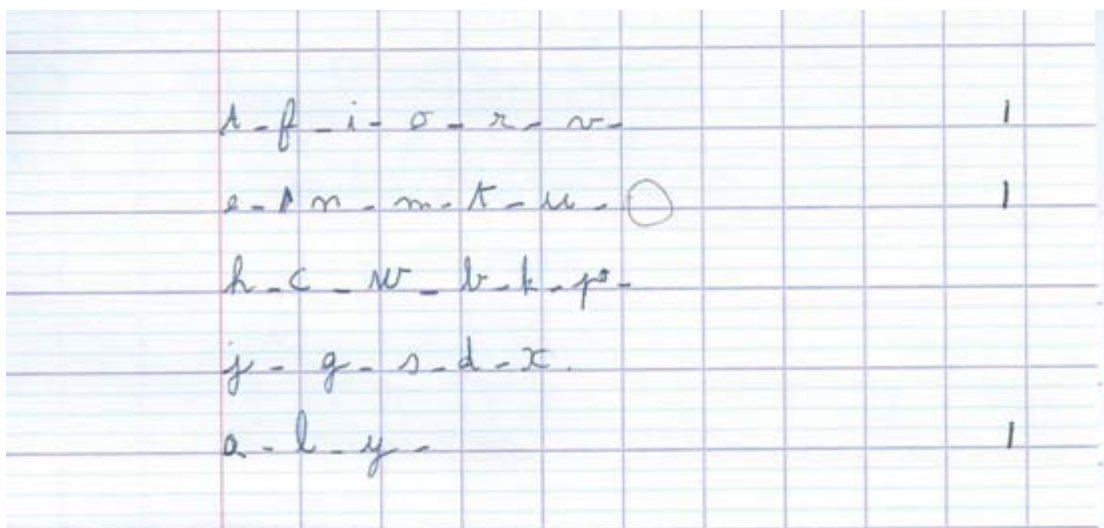 t - f - i - o - r - v - 1
e - n - m - t - u - 1
h - c - w - b - k - p -
j - g - s - d - x .
a - l - y - 1